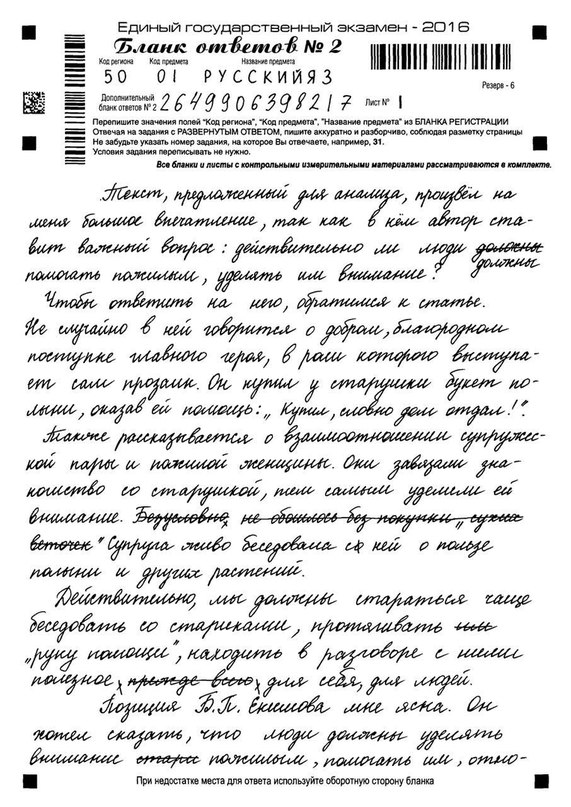 Единый государственный экзамен - 2016
Бланк ответов № 2
Код региона Код предмета Название предмета
50 01 РУССКИЙЯЗ
Резерв - 6
Дополнительный бланк ответов № 2 2649906398217 Лист № 1
Перепишите значения полей "Код региона", "Код предмета", "Название предмета" из БЛАНКА РЕГИСТРАЦИИ
Отвечая на задания с РАЗВЕРНУТЫМ ОТВЕТОМ, пишите аккуратно и разборчиво, соблюдая разметку страницы
Не забудьте указать номер задания, на которое Вы отвечаете, например, 31.
Условия задания переписывать не нужно.
Все бланки и листы с контрольными измерительными материалами рассматриваются в комплекте.
Текст, предложенный для анализа, произвёл на
меня большое впечатление, так как в нём автор ста-
вит важный вопрос: действительно ли люди должны
должны
помогать пожилым, уделять им внимание?
Чтобы ответить на него, обратимся к статье.
Не случайно в ней говорится о добром, благородном
поступке главного героя, в роли которого выступа-
ет сам прозаик. Он купил у старушки букет по-
лыни, оказав ей помощь: „Купил, словно дом отдал!".
Также рассказывается о взаимоотношении супружес-
кой пары и пожилой женщины. Они завязали зна-
комство со старушкой, тем самым уделили ей
внимание. Безусловно, не обошлось без покупки „сухих
веточек" Супруга живо беседовала с ней о пользе
полыни и других растений.
Действительно, мы должны стараться чаще
беседовать со стариками, протягивать им
„руку помощи", находить в разговоре с ними
полезное, прежде всего, для себя, для людей.
Позиция Б.П. Екимова мне ясна. Он
хотел сказать, что люди должны уделять
внимание стари пожилым, помогать им, отно-
При недостатке места для ответа используйте оборотную сторону бланка